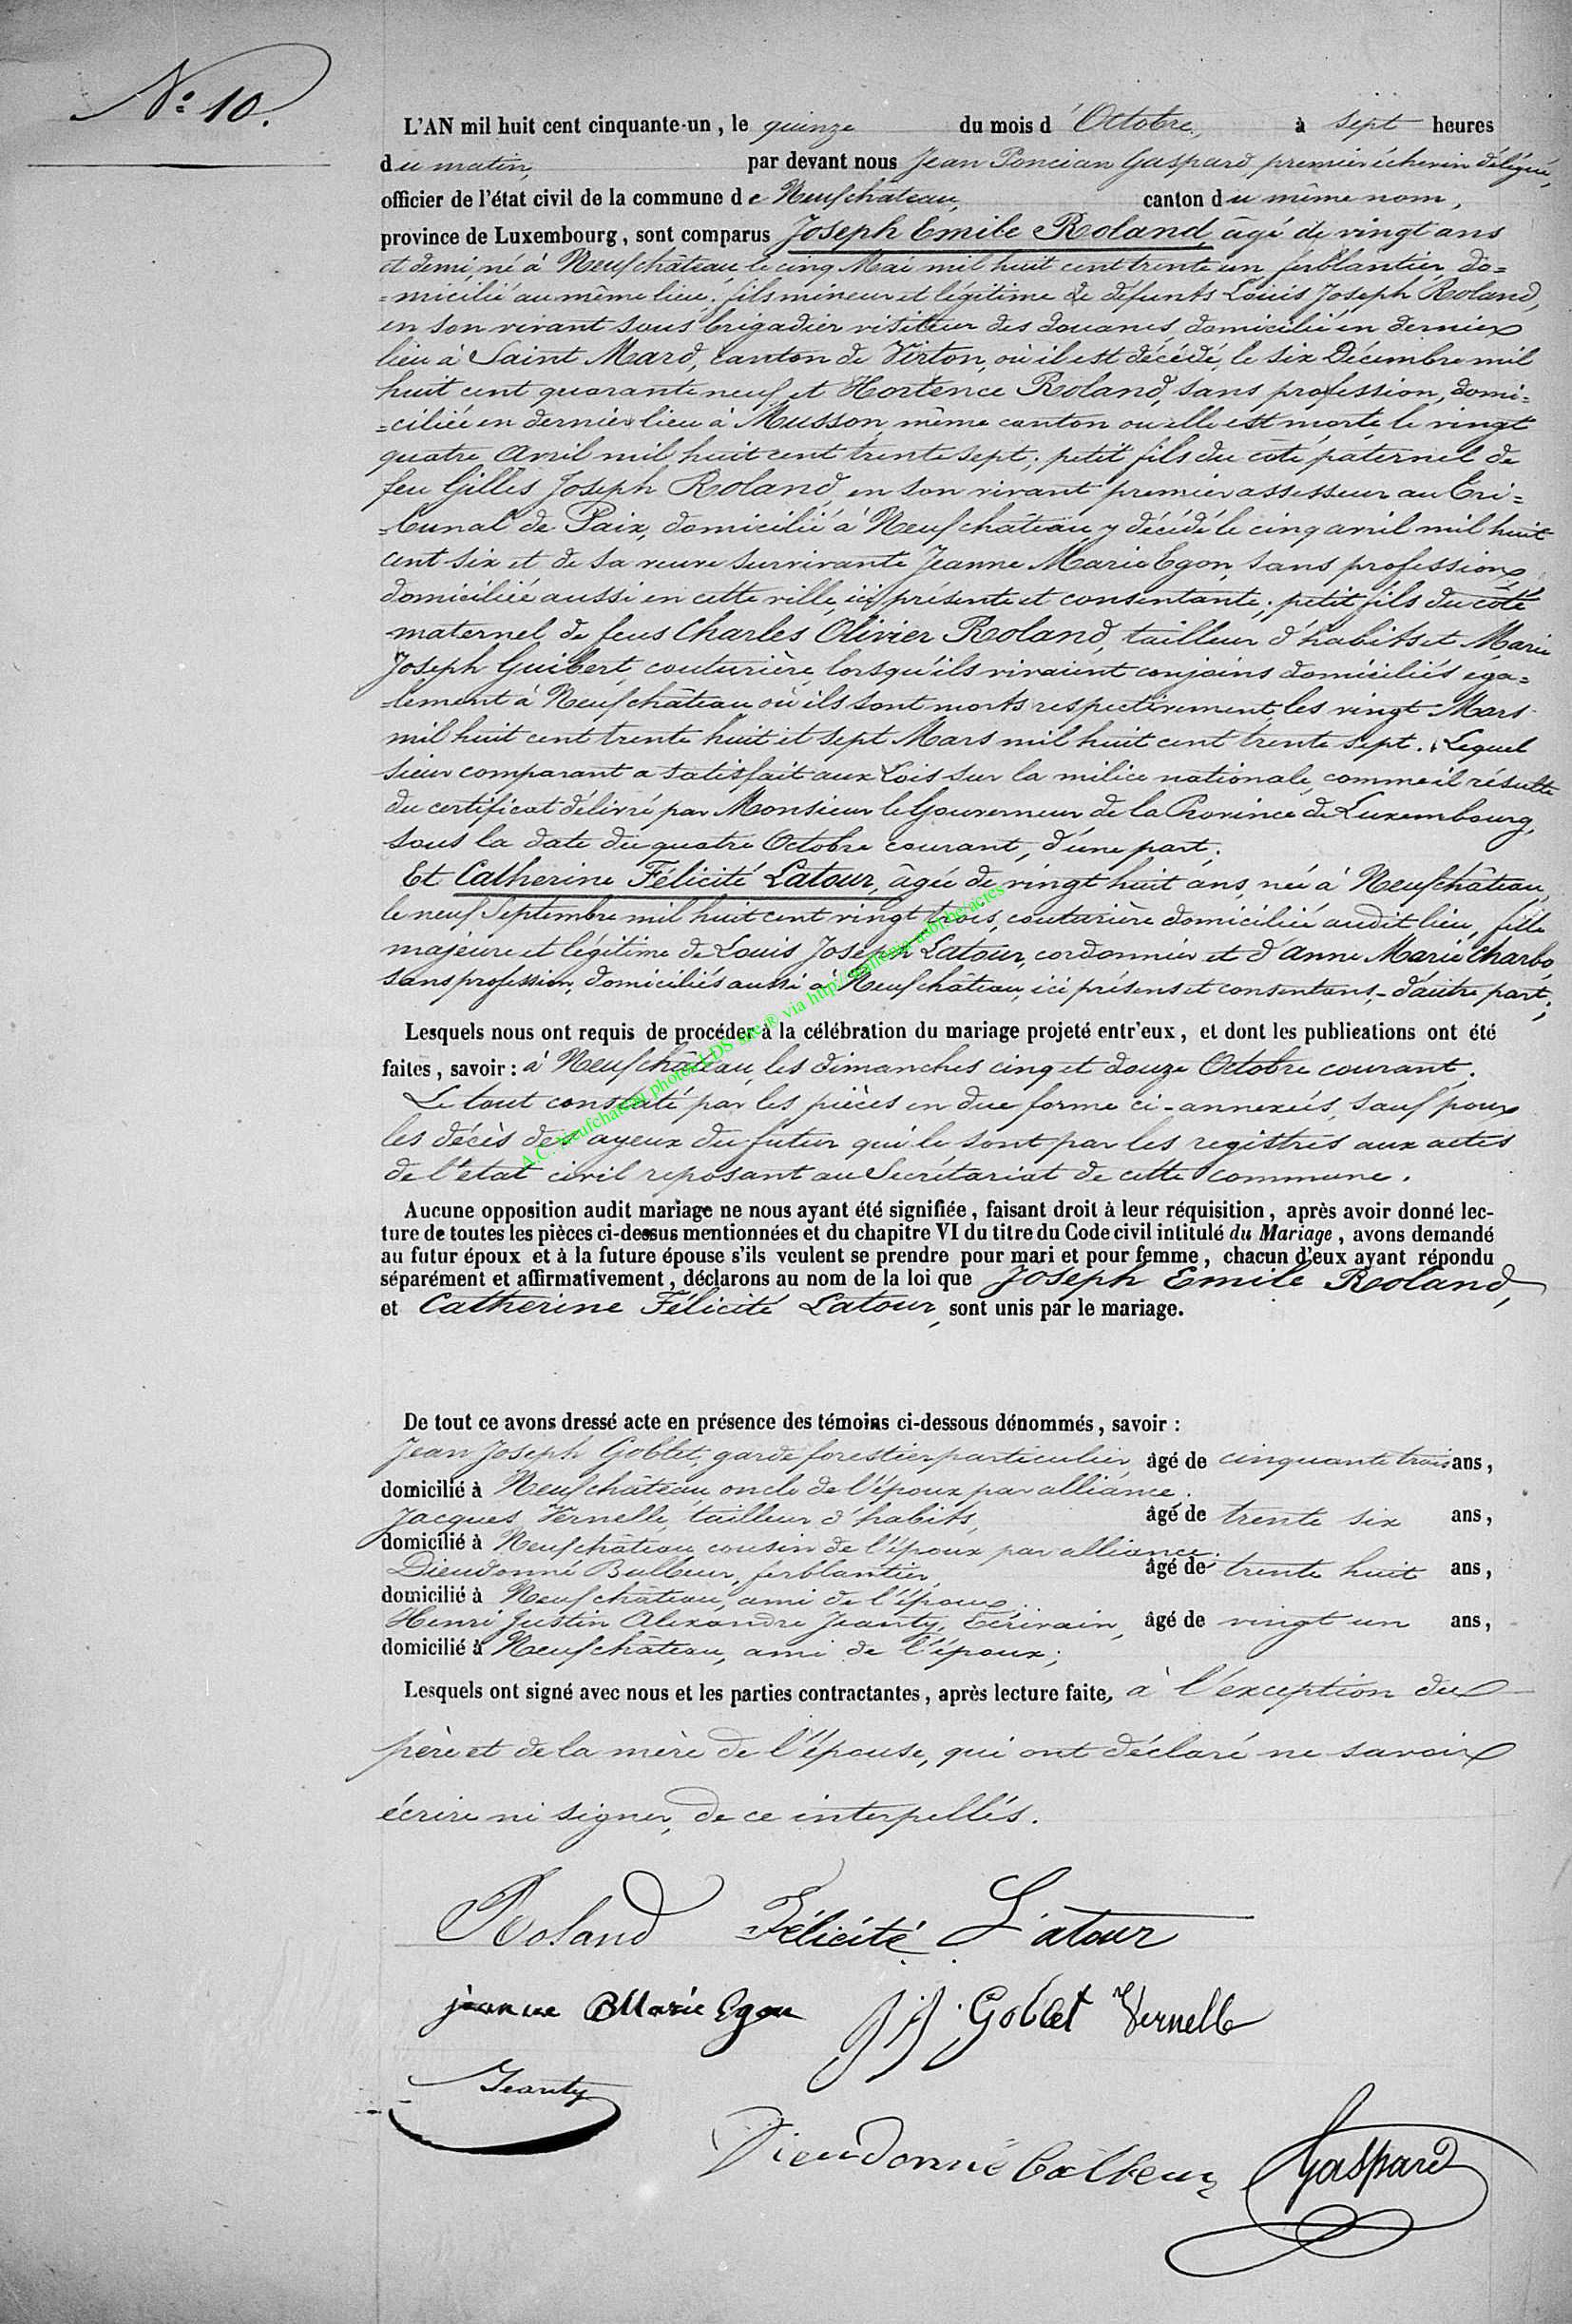 N.º 10.
L'AN mil huit cent cinquante-un, le quinze du mois d'Octobre, à sept heures
du matin, par devant nous Jean Poncian Gaspard, premier échevin délégué,
officier de l'état civil de la commune de Neufchâteau, canton du même nom,
province de Luxembourg, sont comparus Joseph Emile Roland, âgé de vingt ans
et demi, né à Neufchâteau, le cinq Mai mil huit cent trente un, ferblantier, do=
=micilié au même lieu, fils mineur et légitime de défunts Louis Joseph Roland,
en son vivant sous brigadier visiteur des douanes, domicilié en dernier
lieu à Saint Mard, canton de Virton, où il est décédé, le six Décembre mil
huit cent quarante neuf et Hortence Roland, sans profession, domi=
=ciliée en dernier lieu à Musson, même canton où elle est morte le vingt
quatre Avril mil huit cent trente sept; petit fils du côté paternel de
feu Gilles Joseph Roland, en son vivant premier assesseur au Tri=
=bunal de Paix, domicilié à Neufchâteau y décédé le cinq avril mil huit
cent six et de sa veuve survivante Jeanne Marie Egon, sans profession,
domiciliée aussi en cette ville, ici présente et consentante; petit fils du côté
maternel de feus Charles Olivier Roland, tailleur d'habits et Marie
Joseph Guibert, couturière, lorsqu'ils vivaient conjoins domiciliés éga=
=lement à Neufchâteau où ils sont morts respectivement les vingt Mars
mil huit cent trente huit et sept Mars mil huit cent trente sept. Lequel
sieur comparant a satisfait aux Lois sur la milice nationale, comme il résulte
du certificat délivré par Monsieur le Gouverneur de la Province de Luxembourg,
sous la date du quatre Octobre courant, d'une part;
Et Catherine Félicité Latour, âgée de vingt huit ans, née à Neufchâteau,
le neuf Septembre mil huit cent vingt trois, couturière domiciliée audit lieu, fille
majeure et légitime de Louis Joseph Latour, cordonnier et d'Anne Marie Charbo,
sans profession, domiciliés aussi à Neufchâteau, ici présens et consentans, d'autre part;
Lesquels nous ont requis de procéder à la célébration du mariage projeté entr'eux, et dont les publications ont été
faites, savoir: à Neufchâteau, les dimanches cinq et douze Octobre courant.
Le tout constaté par les pièces en due forme ci-annexées, sauf pour
les décès des ayeux du futur qui le sont par les registres aux actes
de l'état civil reposant au Secrétariat de cette commune.
Aucune opposition audit mariage ne nous ayant été signifiée, faisant droit à leur réquisition, après avoir donné lec-
ture de toutes les pièces ci-dessus mentionnées et du chapitre VI du titre du Code civil intitulé du Mariage, avons demandé
au futur époux et à la future épouse s'ils veulent se prendre pour mari et pour femme, chacun d'eux ayant répondu
séparément et affirmativement, déclarons au nom de la loi que Joseph Emile Roland,
et Catherine Félicité Latour, sont unis par le mariage.
De tout ce avons dressé acte en présence des témoins ci-dessous dénommés, savoir:
Jean Joseph Goblet, garde forestier particulier, âgé de cinquante trois ans,
domicilié à Neufchâteau, oncle de l'époux par alliance.
Jacques Vernelle, tailleur d'habits, âgé de trente six ans,
domicilié à Neufchâteau cousin de l'époux par alliance.
Dieudonné Balbeur, ferblantier, âgé de trente huit ans,
domicilié à Neufchâteau, ami de l'époux.
Henri Justin Alexandre Jeanty, Ecrivain, âgé de vingt un ans,
domicilié à Neufchâteau, ami de l'époux;
Lesquels ont signé avec nous et les parties contractantes, après lecture faite, à l'exception du
père et de la mère de l'épouse, qui ont déclaré ne savoir
écrire ni signer, de ce interpellés.
Roland Félicité Latour
jeanne Marie Egon J J Goblet Vernelle
Jeanty
Dieudonné Balbeur Gaspard